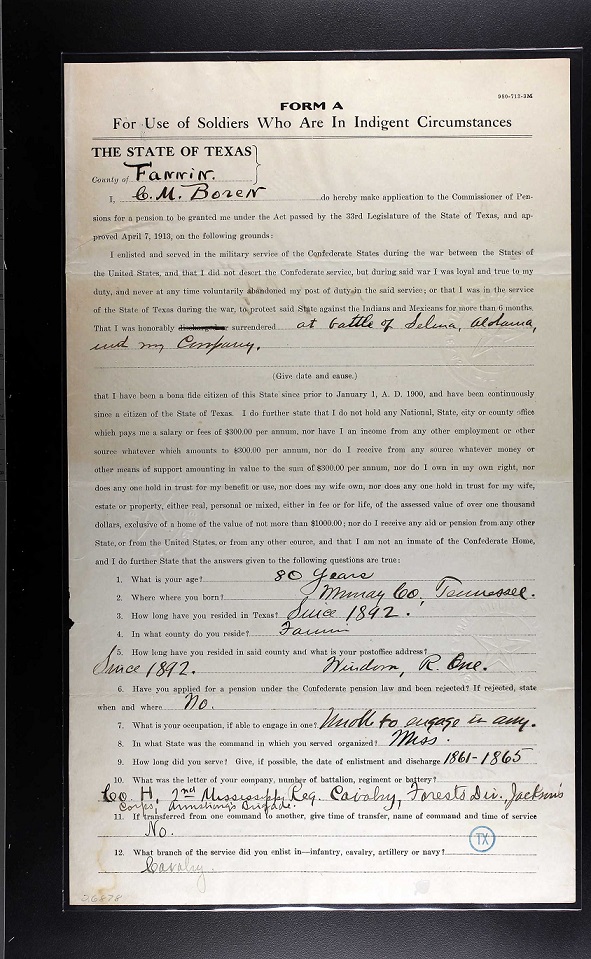 980-713-3M
FORM A
For Use of Soldiers Who Are In Indigent Circumstances
THE STATE OF TEXAS
County of Fannin.
I, C. M. Boren do hereby make application to the Commissioner of Pen-
sions for a pension to be granted me under the Act passed by the 33rd Legislature of the State of Texas, and ap-
proved April 7, 1913, on the following grounds:
I enlisted and served in the military service of the Confederate States during the war between the States of
the United States, and that I did not desert the Confederate service, but during said war I was loyal and true to my
duty, and never at any time voluntarily abandoned my post of duty in the said service; or that I was in the service
of the State of Texas during the war, to protect said State against the Indians and Mexicans for more than 6 months.
That I was honorably discharged or surrendered at battle of Selma, Alabama,
my Company.
(Give date and cause.)
that I have been a bona fide citizen of this State since prior to January 1, A. D. 1900, and have been continuously
since a citizen of the State of Texas. I do further state that I do not hold any National, State, city or county office
which pays me a salary or fees of $300.00 per annum, nor have I an income from any other employment or other
source whatever which amounts to $300.00 per annum, nor do I receive from any source whatever money or
other means of support amounting in value to the sum of $300.00 per annum, nor do I own in my own right, nor
does any one hold in trust for my benefit or use, nor does my wife own, nor does any one hold in trust for my wife,
estate or property, either real, personal or mixed, either in fee or for life, of the assessed value of over one thousand
dollars, exclusive of a home of the value of not more than $1000.00; nor do I receive any aid or pension from any other
State, or from the United States, or from any other source, and that I am not an inmate of the Confederate Home,
and I do further State that the answers given to the following questions are true:
1. What is your age? 80 years
2. Where where you born? Murray Co, Tennessee.
3. How long have you resided in Texas? Since 1892.
4. In what county do you reside? Fannin
5. How long have you resided in said county and what is your postoffice address?
Since 1892. Windom, R. One.
6. Have you applied for a pension under the Confederate pension law and been rejected? If rejected, state
when and where No.
7. What is your occupation, if able to engage in one? Unable to engage in any.
8. In what State was the command in which you served organized? Miss.
9. How long did you serve? Give, if possible, the date of enlistment and discharge 1861-1865
10. What was the letter of your company, number of battalion, regiment or battery?
Co. H, 2nd Mississippi Reg. Cavalry, Forests Div. Jackson's
Corps, Armstrong's Brigade.
11. If transferred from one command to another, give time of transfer, name of command and time of service
No.
TX
12. What branch of the service did you enlist in—infantry, cavalry, artillery or navy?
Cavalry.
26878